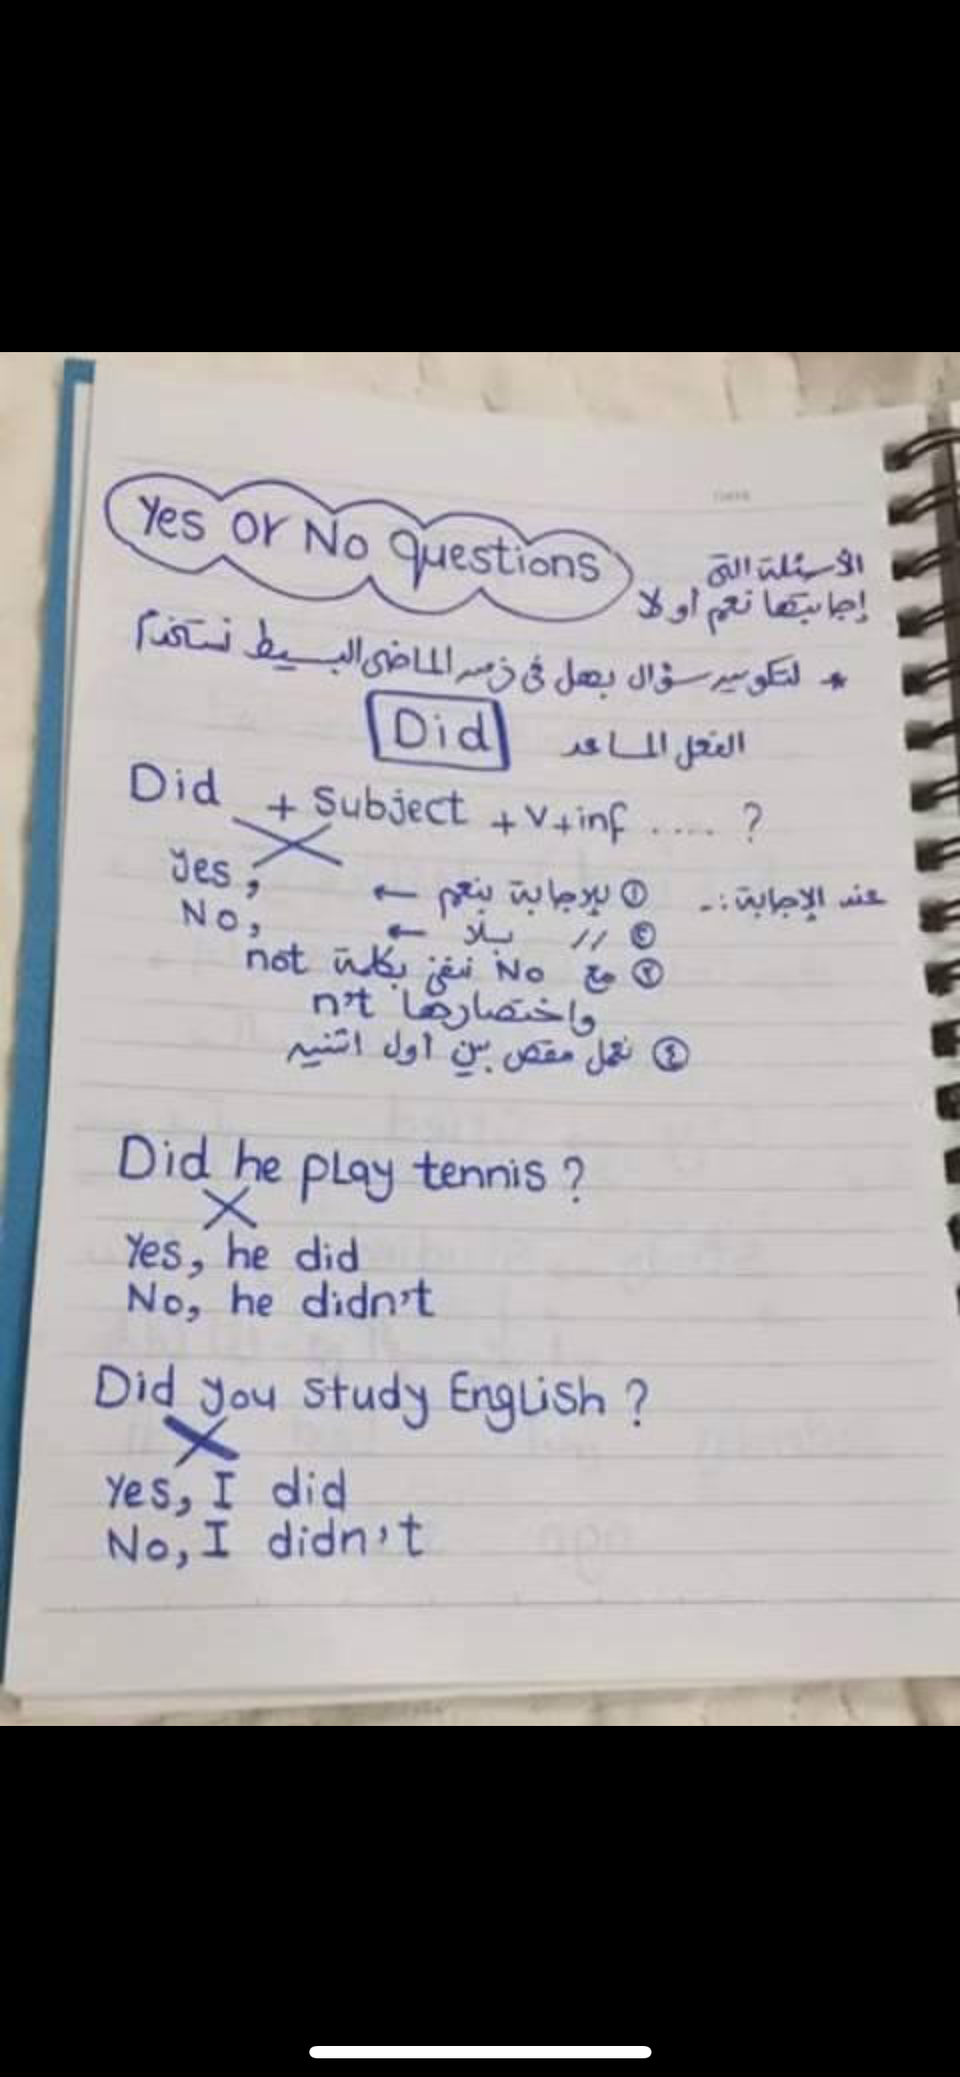 Yes or No Questions
الأسئلة التى
إجابتها نعم أو لا
* لتكوين سؤال بهل فى زمن الماضى البسيط نستخدم
الفعل المساعد Did
Did + Subject + V+inf .... ?
عند الإجابة :-
Yes, ← ① للإجابة بنعم
No, ← ② // بلا
③ مع No ننفى بكلمة not
واختصارها n't
④ نعمل مقص بين أول اتنين
Did he play tennis ?
Yes, he did
No, he didn't
Did you study English ?
Yes, I did
No, I didn't